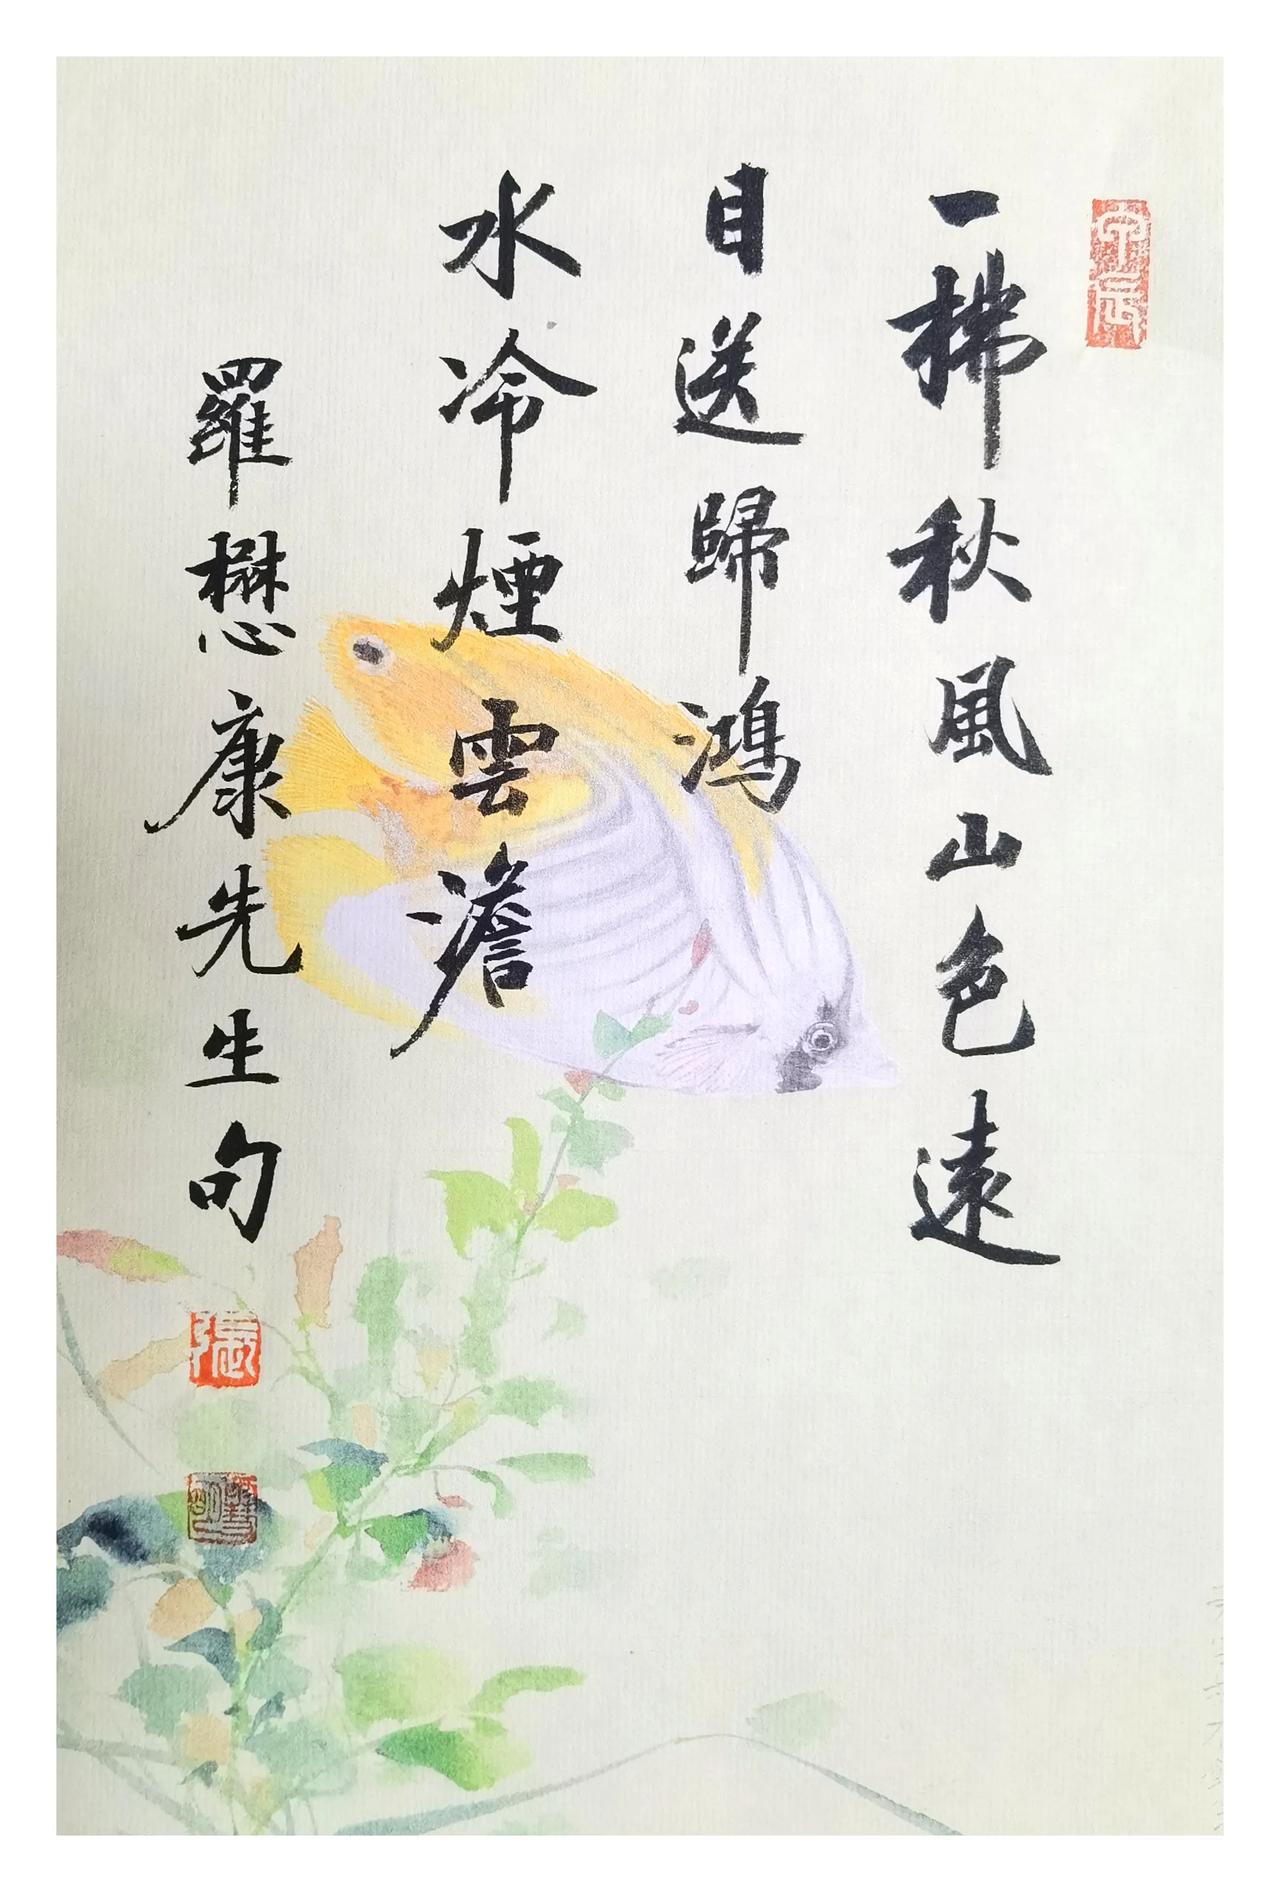 一拂秋風山色遠
目送歸鴻
水冷煙雲澹
羅懋康先生句
張